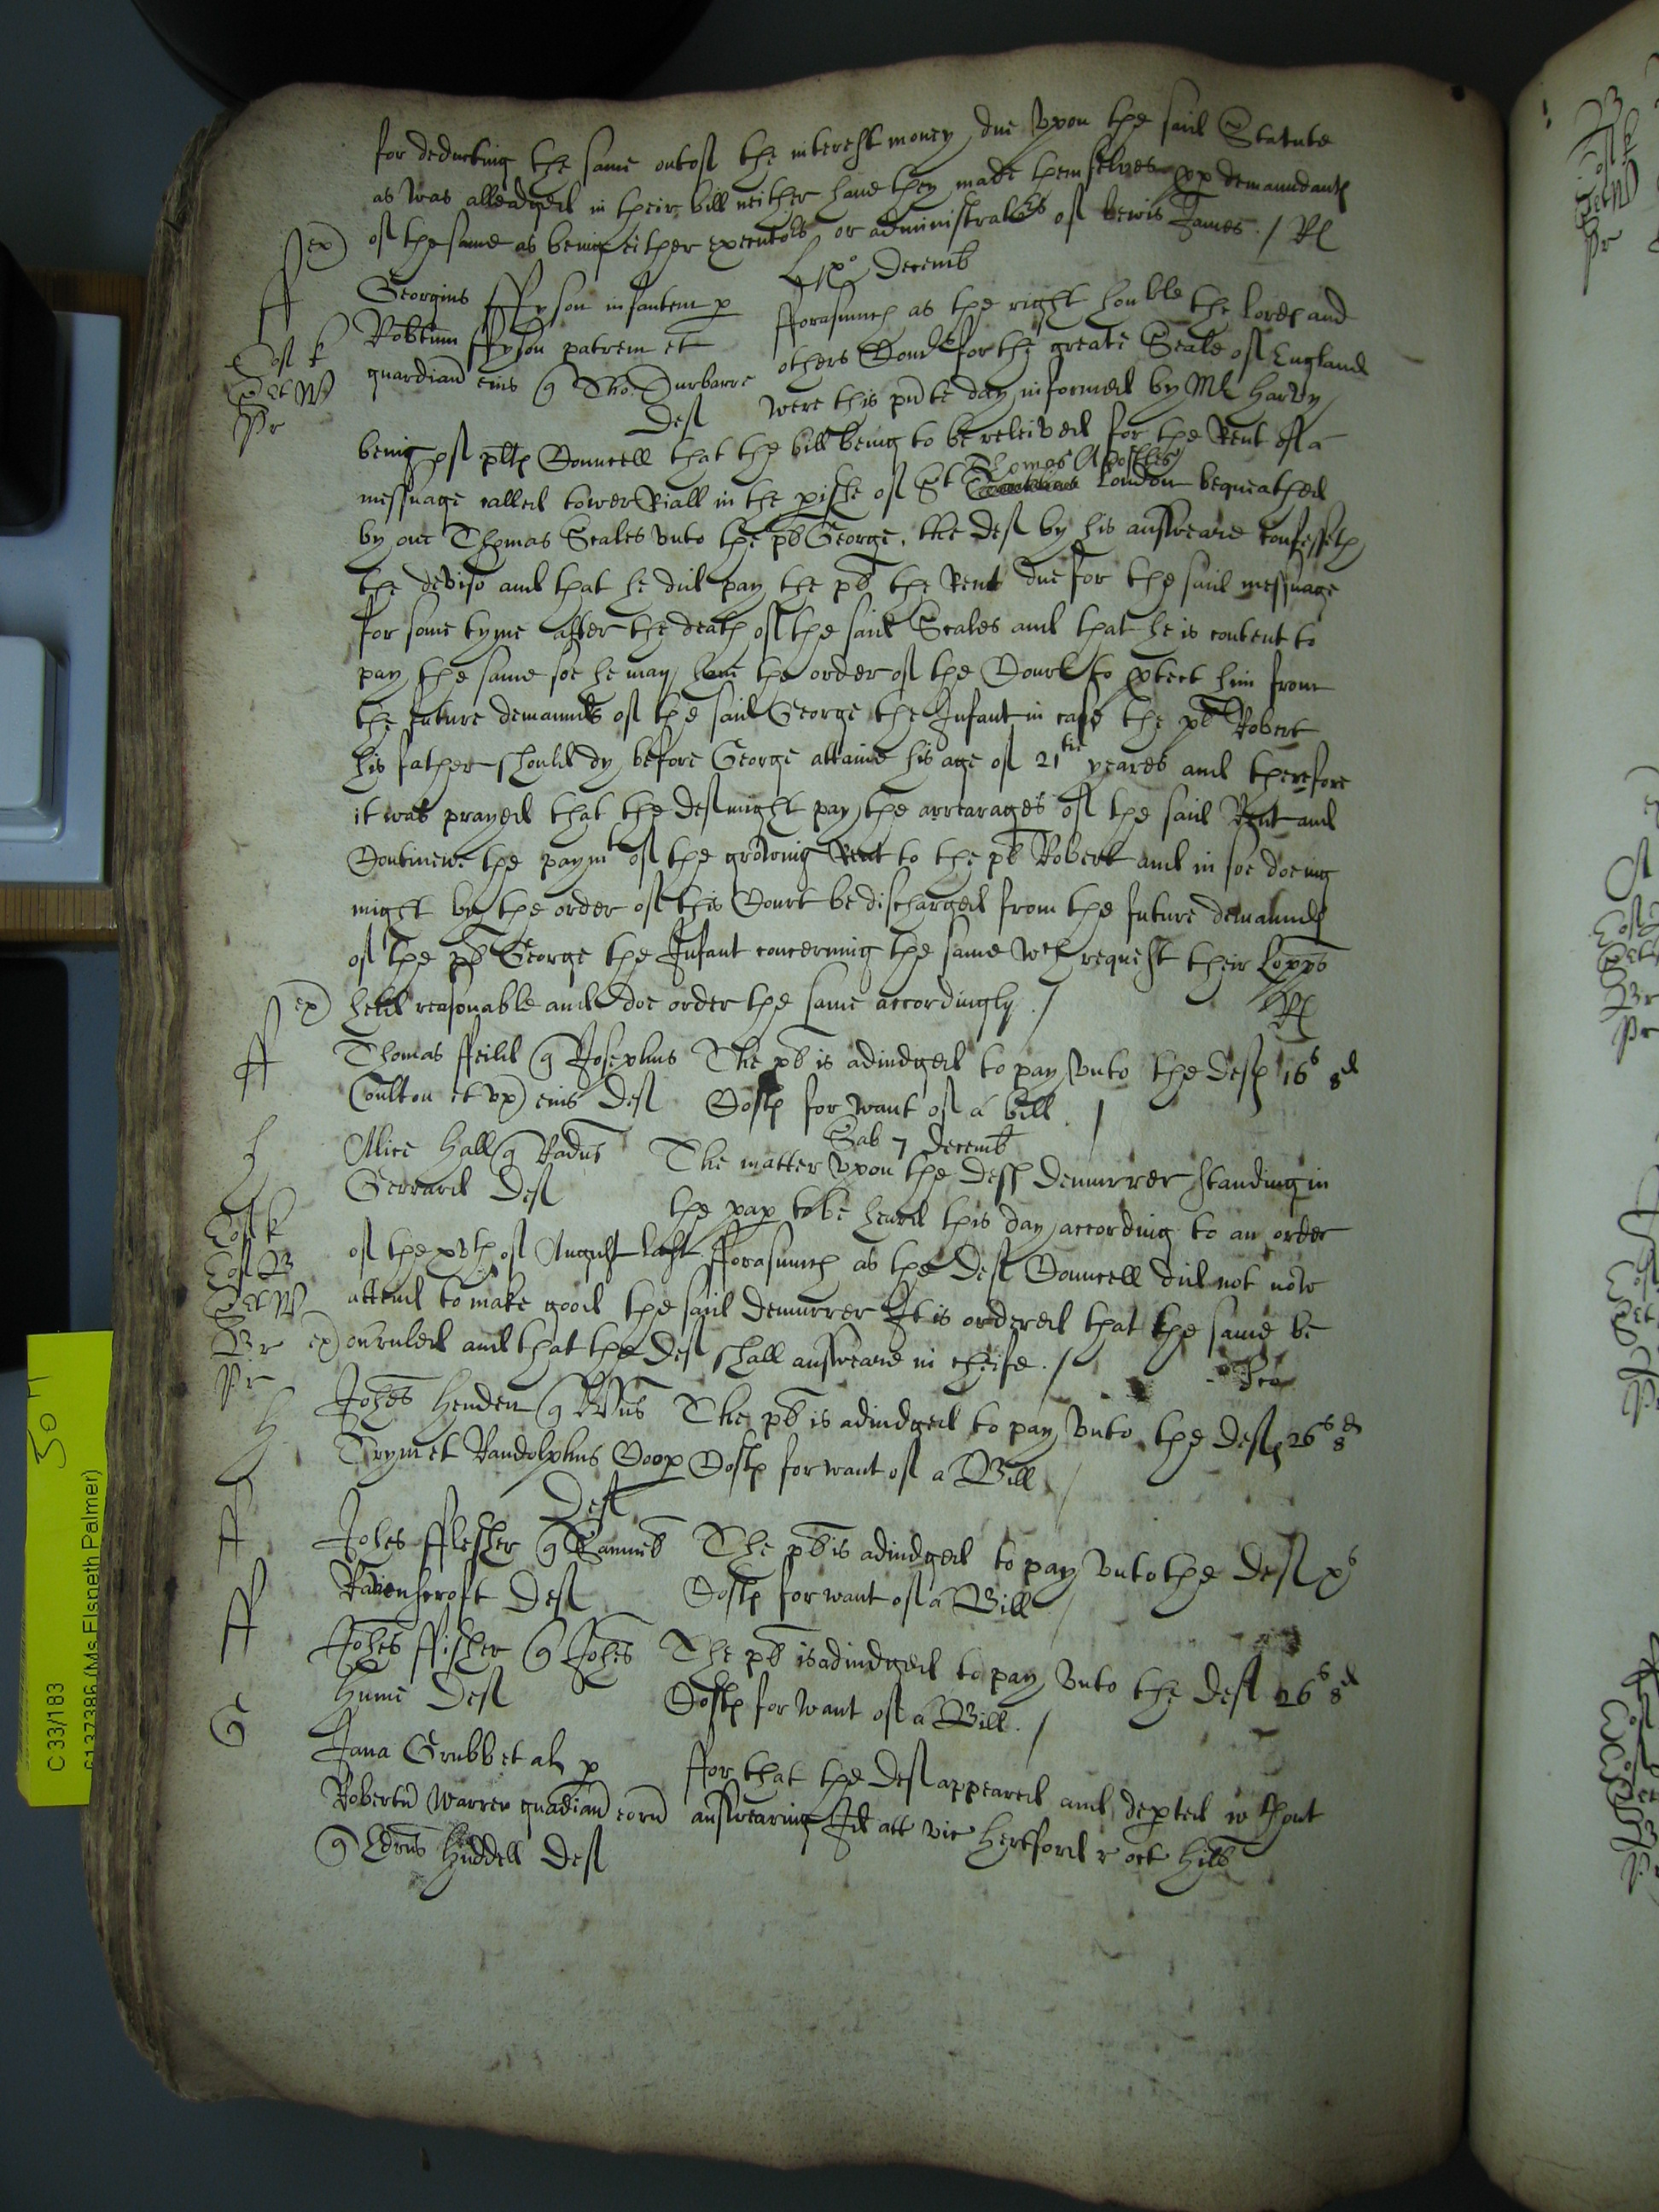 for deducting the same out of the interest money due vpon the said Statute
as was alleadged in their bill neither have they made themselves pp demaundants
of the same as being either executors or administrators of Lewis James ./ Rl
ex)
L xo Decemb
ff
Georgius ffyson infantem p
Robtum ffyson patrem et
guardian eius q Tho: Durbarre
Def
Cof k
Pet W
Pr
fforasmuch as the right honble the lordes and
others Comrs for the greate Seale of England
were this pnte day informed by Mr Hardy
being of pltes Councell that the bill being to be releived for the Rent of a
messuage called tower Riall in the pishe of St Thomas Apostles London bequeathed
by one Thomas Scales vnto the pl George, the def by his answeare confesseth
the devise and that he did pay the pl the Rent due for the said messuage
for some tyme after the death of the said Scales and that he is content to
pay the same soe he may have the order of the Court to ptect him from
the future demaunds of the said George the Infant in case the pl Robert
his father should dy before George attaine his age of 21tie yeares and therefore
it was prayed that the def might pay the arrearages of the said Rent and
Continewe the paymt of the growing Rent to the pl Robert and in soe doeing
might by the order of this Court be discharged from the future demaundes
of the pl George the Infant concerning the same wch request their Lopps
ex) held reasonable and doe order the same accordingly ./ Rl
ff
Thomas ffeild q Josephus
Coulton et vx) eius Def
The pl is adiudged to pay vnto the Defs 16s 8d
Costes for want of a bill . /
Sab 7 Decemb
h
Alice Hall q Radus
Gerrard Def
Cof k
Cof B
Pet W
Br
Pr
The matter vpon the Defs Demurrer standing in
the pap to be heard this day according to an order
of the xvth of August last. fforasmuch as the Def Councell did not now
attend to make good the said Demurrer It is ordered that the same be
ex) ouruled and that the Def shall answeare in cheife ./
H
Johes Henden q Willus
Trym et Randolphus Coop
Def
The pl is adiudged to pay vnto the Defs 26s 8d
Costes for want of a Bill /
ff
Johes fflesher q
Ravenscroft Def
The pl is adiudged to pay vnto the Def xs
Costes for want of a Bill /
ff
Johes ffisher q Johes
Hume Def
The pl is adiudged to pay vnto the Def 26s 8d
Costes for want of a Bill . /
G
Jana Grubb et al p
Robertu Warren guadian eoru
q Edrus Huddell Def
ffor that the Def appeared and depted without
answearing Id att vic Hertford r oct Hill
C 33/183
61373386 (Ms Elspeth Palmer)